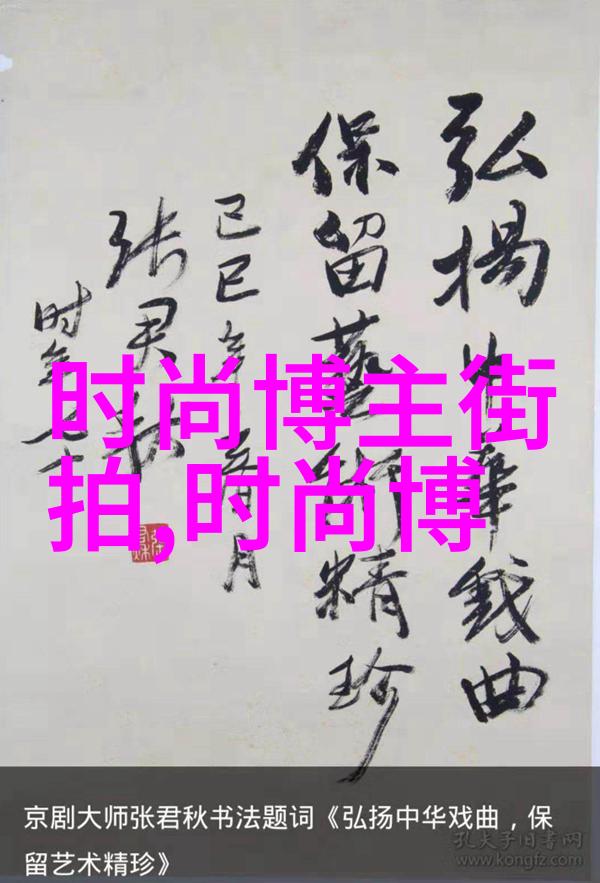 弘揚中華戏曲
保留藝術精珍
己巳年五月
张君秋
时年七十
时尚博主街
拍,时尚博
京剧大师张君秋书法题词《弘扬中华戏曲，保
留艺术精珍》
孔夫子旧书网
www.kongfz.com